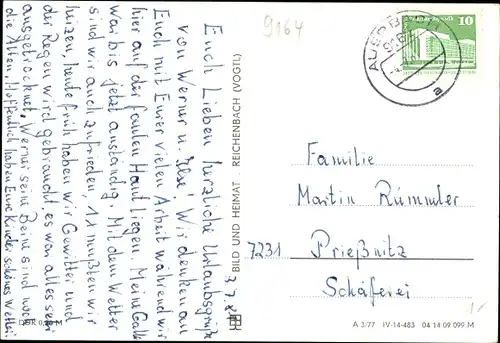 9164
Euch Lieben herzliche Urlaubsgrüße
von Werner u. Ilse! Wir denken an
Euch mit Eurer vielen Arbeit während wir
hier auf der faulen Haut liegen. Meine Galle
war bis jetzt anständig. Mit dem Wetter
sind wir auch zufrieden, 1x mußten wir
heizen, heute früh haben wir Gewitter und
der Regen wird gebraucht, es war alles sehr
ausgetrocknet. Werner seine Beine sind noch
die Alten. Hoffentlich haben Eure Kinder schönes Wetter
BILD UND HEIMAT REICHENBACH (VOGTL)
10
a
Familie
Martin Rümmler
7231 Prießnitz
Schäferei
A 3/77 IV-14-483 04 14 09 099 M